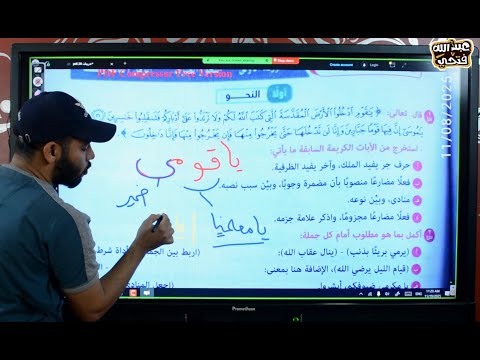 عبد الله
فتحي
11/08/2025
PDF Compressor Free Version
أولًا النحو
قال تعالى: ﴿ يَٰقَوْمِ ٱدْخُلُوا۟ ٱلْأَرْضَ ٱلْمُقَدَّسَةَ ٱلَّتِى كَتَبَ ٱللَّهُ لَكُمْ وَلَا تَرْتَدُّوا۟ عَلَىٰٓ أَدْبَارِكُمْ فَتَنقَلِبُوا۟ خَٰسِرِينَ
يَٰمُوسَىٰٓ إِنَّ فِيهَا قَوْمًا جَبَّارِينَ وَإِنَّا لَن نَّدْخُلَهَا حَتَّىٰ يَخْرُجُوا۟ مِنْهَا فَإِن يَخْرُجُوا۟ مِنْهَا فَإِنَّا دَٰخِلُونَ ﴾
استخرج من الآيات الكريمة السابقة ما يأتي:
حرف جر يفيد الملك، وآخر يفيد الظرفية.
فعلًا مضارعًا منصوبًا بأن مضمرة وجوبًا، وبيّن سبب نصبه.
منادى، وبيّن نوعه.
فعلًا مضارعًا مجزومًا، واذكر علامة جزمه.
يا قومي
ضمير
يا معلمينا
أكمل بما هو مطلوب أمام كل جملة:
(يرمي بريئًا بذنب) – (ينال عقاب الله): (اربط بين الجملتين بأداة شرط
(قيام الليل يرضي الله)، الإضافة هنا بمعنى:
يا مكرمي ضيوفكم، أبشروا. (اجعل المنادى
Promethean